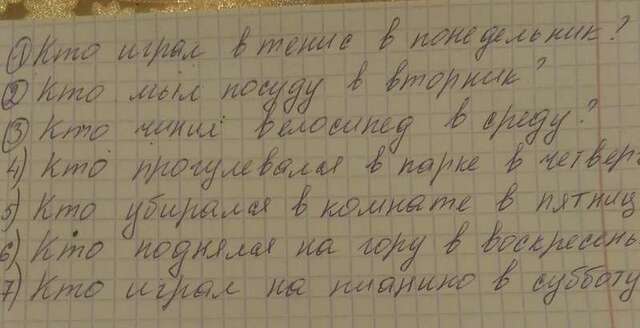 1 Кто играл в тенис в понедельник?
2 Кто мыл посуду в вторник?
3 Кто чинил велосипед в среду?
4) Кто прогулевался в парке в четверг
5) Кто убирался в комнате в пятниц
6) Кто поднялся на гору в воскресень
7) Кто играл на пианино в субботу